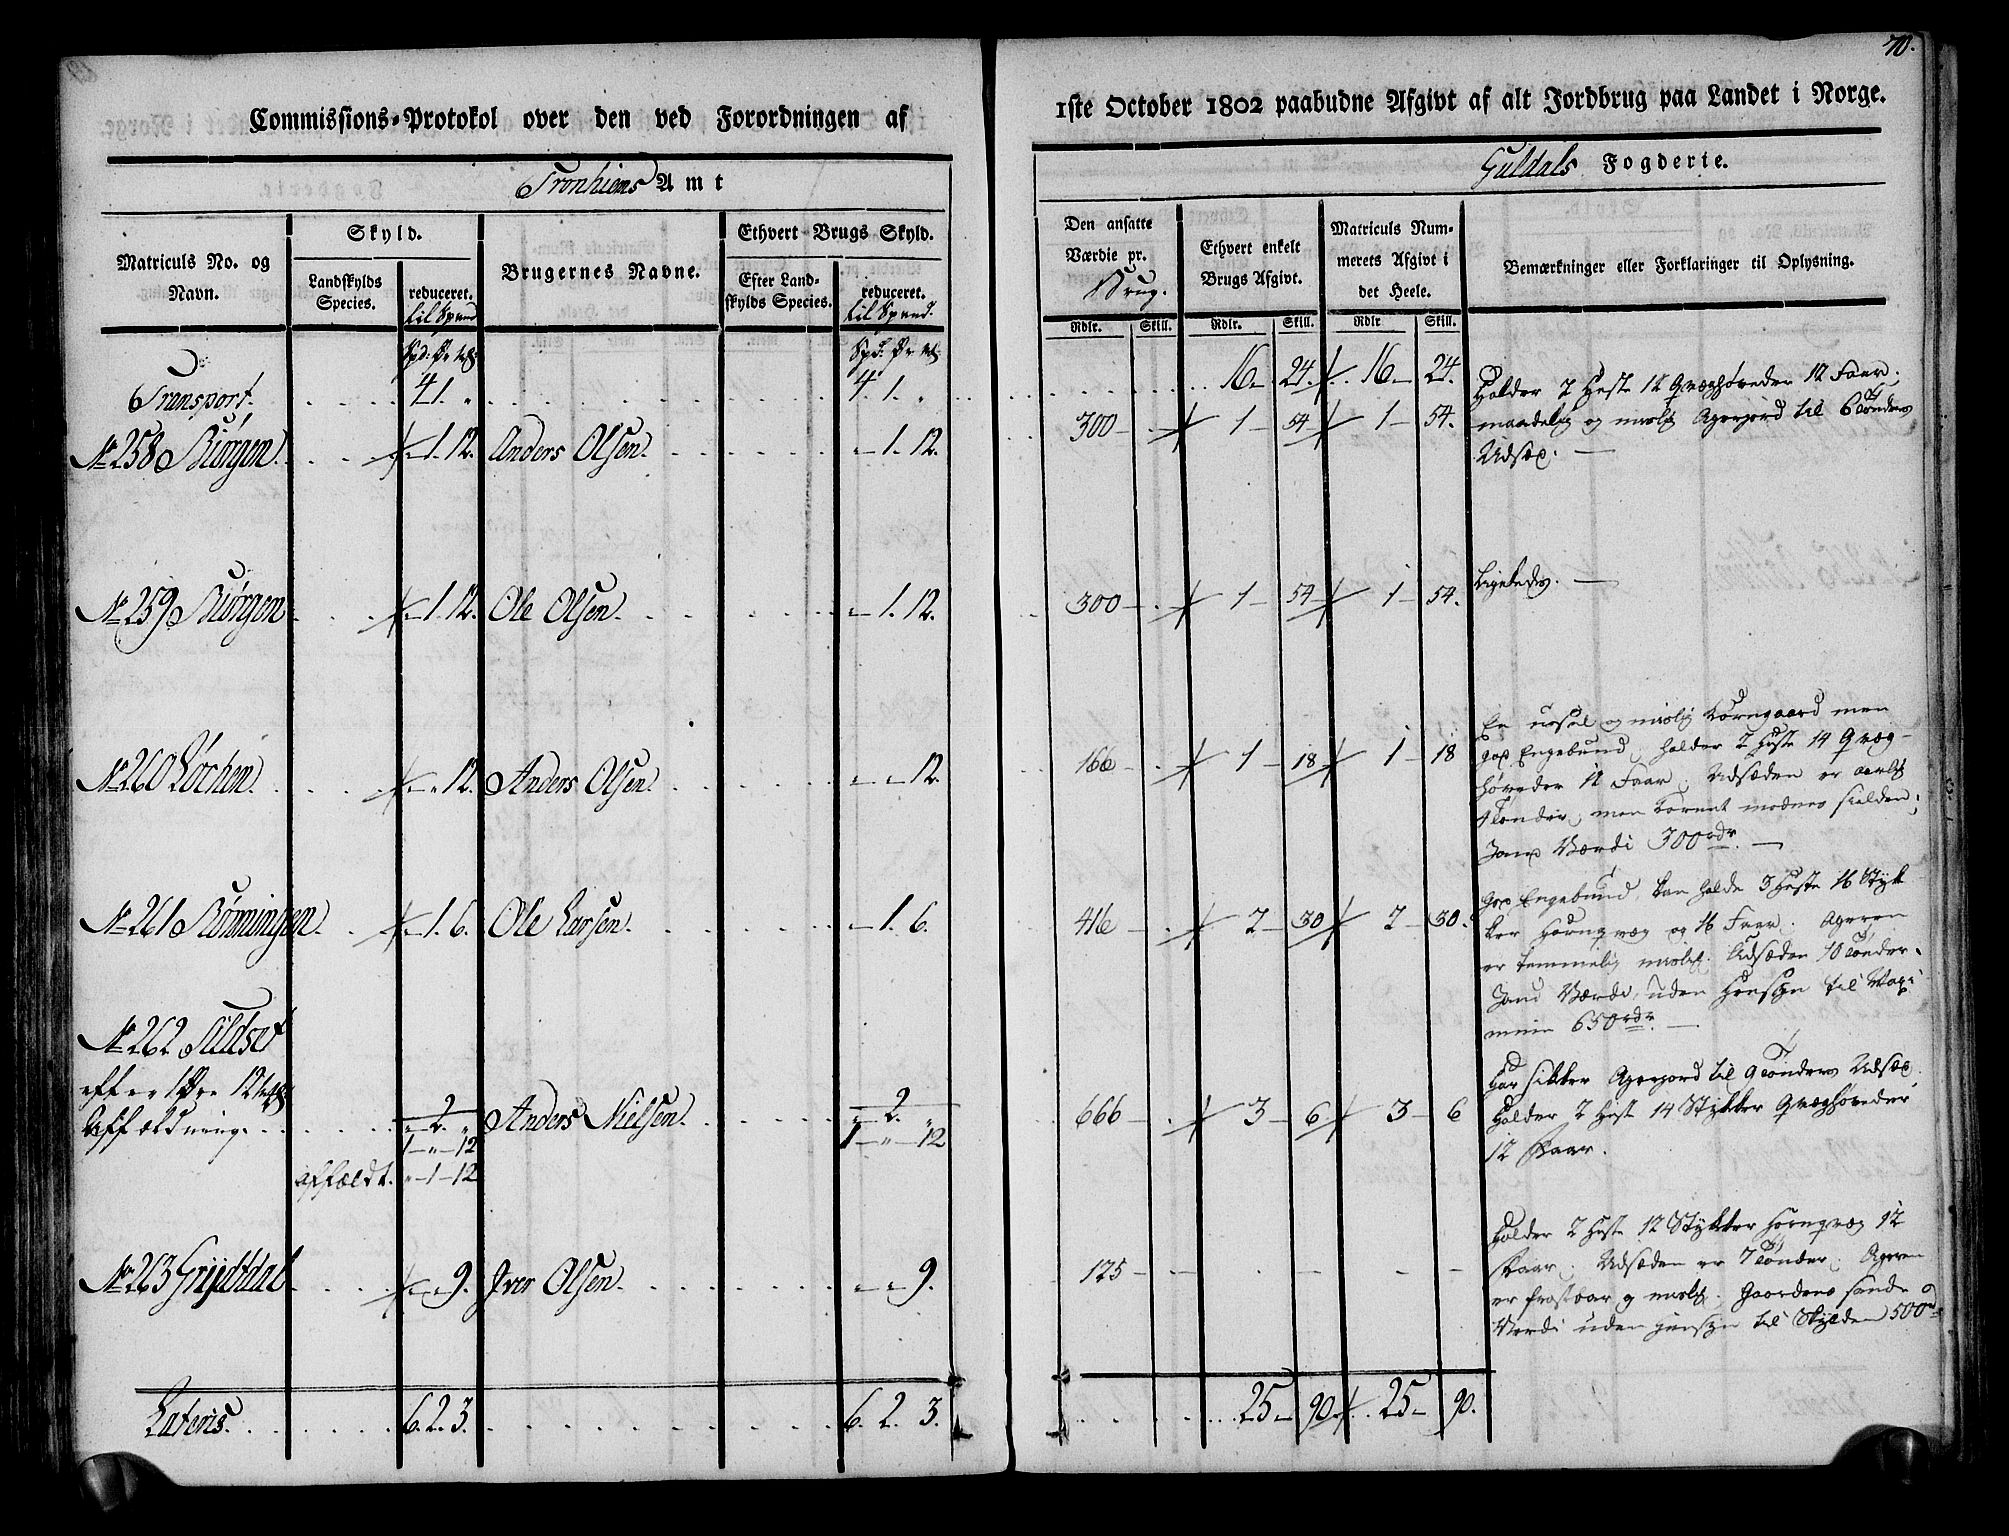 70.
Commissions-Protokol over den ved Forordningen af
1ste October 1802 paabudne Afgivt af alt Jordbrug paa Landet i Norge.
Tronhiems Amt
Guldals Fogderie.
Matriculs No. og Navn.
Skyld.
Landskylds Species.
reduceret. til Spand
Brugernes Navne.
Ethvert Brugs Skyld.
Efter Landskylds Species.
reduceret. til Spand.
Den ansatte Værdie pr. Brug.
Ethvert enkelt Brugs Afgivt.
Matriculs Nummerets Afgivt i det Heele.
Bemærkninger eller Forklaringer til Oplysning.
Rdlr. Skill. Rdlr. Skill. Rdlr Skill.
Transport. 4 1. „ 4. 1. „ 16 24. 16 24.
No 258 Biørgen. 1. 12. Anders Olsen. 1. 12. 300 1 54 1 54.
Holder 2 Heste 12 Qvæghøveder 12 Faar.
maadelig og mislig Agerjord til 6 Tønders
Udsæd.
No 259 Biørgen 1. 12. Ole Olsen. 1. 12. 300 1 54 1 54.
Ligeledes.
No 260 Løchen. „ 12. Anders Olsen. 12. 166 1 18 1 18
En ussel og mislig Korngaard men
god Engebund, holder 2 Heste 14 Qvæg-
høveder 12 Faar. Udsæden er aarlig
Tønder, men Kornet modnes sielden;
Sand Værdi 300 rdr.
No 261 Rønningen. 1. 6. Ole Larsen. 1. 6. 416 2 30 2 30.
god Engebund, kan holde 3 Heste 16 Styk-
ker Hornqvæg og 16 Faar. Ageren
er temmelig mislig. Udsæden 10 Tønder.
Sand Værdi uden Hensyn til Maxi
mum 650 rdr.
No 262 Aldset
efter 1 Øre 12
Affældning. 2 2. „ Anders Nielsen. 2 2. „ 666 3 6 3 6
1 „ 12 1 „ 12
affældt. „ 1 12
Har sikker Agerjord til 9 Tønders Udsæd.
Holder 2 Heste 14 Stykker Qvæghøveder
12 Faar.
No 263 Gryjtdal 9. Iver Olsen. 9. 125
Holder 2 Heste 12 Stykker Hornqvæg 12
Faar. Udsæden er 7 Tønder. Ageren
er frostvar og mislig. Gaardens sande
Værdi uden Hensyn til Skylden 500 rd
Lateris. 6. 2. 3. 6. 2. 3. 25 90. 25 90.